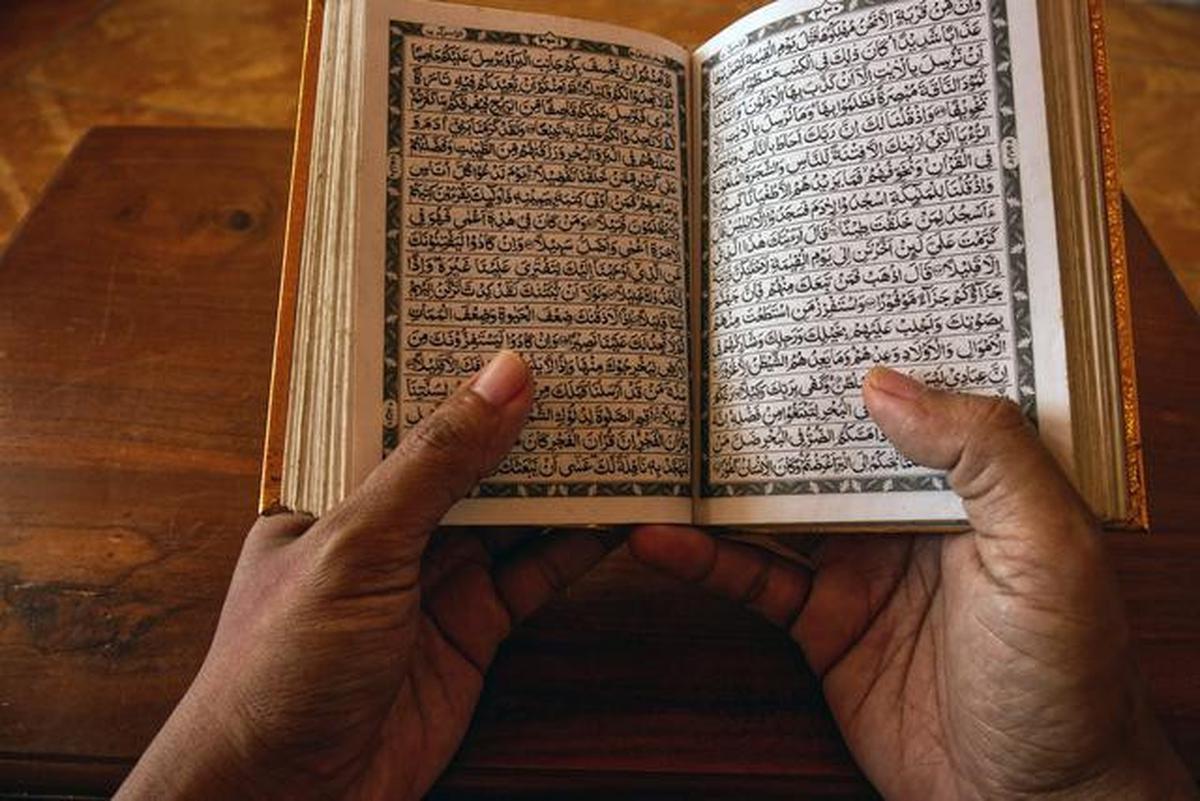 وَاِنْ مِّنْ قَرْيَةٍ اِلَّا نَحْنُ مُهْلِكُوْهَا قَبْلَ يَوْمِ الْقِيٰمَةِ
عَذَابًا شَدِيْدًا كَانَ ذٰلِكَ فِى الْكِتٰبِ مَسْطُوْرًا
اَنْ نُّرْسِلَ بِالْاٰيٰتِ اِلَّآ اَنْ كَذَّبَ بِهَا الْاَوَّلُوْنَ وَاٰتَيْنَا
ثَمُوْدَ النَّاقَةَ مُبْصِرَةً فَظَلَمُوْا بِهَا وَمَا نُرْسِلُ بِالْاٰيٰتِ
تَخْوِيْفًا وَاِذْ قُلْنَا لَكَ اِنَّ رَبَّكَ اَحَاطَ بِالنَّاسِ
الرُّءْيَا الَّتِيْٓ اَرَيْنٰكَ اِلَّا فِتْنَةً لِّلنَّاسِ وَالشَّجَرَةَ الْمَلْعُوْنَةَ
فِى الْقُرْاٰنِ وَنُخَوِّفُهُمْ فَمَا يَزِيْدُهُمْ اِلَّا طُغْيَانًا كَبِيْرًا
وَاِذْ قُلْنَا لِلْمَلٰٓئِكَةِ اسْجُدُوْا لِاٰدَمَ فَسَجَدُوْٓا اِلَّآ اِبْلِيْسَ
ءَاَسْجُدُ لِمَنْ خَلَقْتَ طِيْنًا قَالَ اَرَءَيْتَكَ هٰذَا الَّذِيْ
كَرَّمْتَ عَلَيَّ لَىِٕنْ اَخَّرْتَنِ اِلٰى يَوْمِ الْقِيٰمَةِ لَاَحْتَنِكَنَّ
اِلَّا قَلِيْلًا قَالَ اذْهَبْ فَمَنْ تَبِعَكَ مِنْهُمْ فَاِنَّ جَهَنَّمَ
جَزَآؤُكُمْ جَزَآءً مَّوْفُوْرًا وَاسْتَفْزِزْ مَنِ اسْتَطَعْتَ مِنْهُمْ
بِصَوْتِكَ وَاَجْلِبْ عَلَيْهِمْ بِخَيْلِكَ وَرَجِلِكَ وَشَارِكْهُمْ فِى
الْاَمْوَالِ وَالْاَوْلَادِ وَعِدْهُمْ وَمَا يَعِدُهُمُ الشَّيْطٰنُ اِلَّا غُرُوْرًا
اِنَّ عِبَادِيْ لَيْسَ سُلْطٰنٌ وَكَفٰى بِرَبِّكَ وَكِيْلًا
فِى الْبَحْرِ لِتَبْتَغُوْا مِنْ فَضْلِهٖ
مَسَّكُمُ الضُّرُّ فِى الْبَحْرِ ضَلَّ مَنْ
اِلَى الْبَرِّ اَعْرَضْتُمْ وَكَانَ الْاِنْسَانُ كَفُوْرًا
اَفَاَمِنْتُمْ اَنْ يَّخْسِفَ بِكُمْ جَانِبَ الْبَرِّ اَوْ يُرْسِلَ عَلَيْكُمْ حَاصِبًا
ثُمَّ لَا تَجِدُوْا لَكُمْ وَكِيْلًا اَمْ اَمِنْتُمْ اَنْ يُّعِيْدَكُمْ فِيْهِ تَارَةً
اُخْرٰى فَيُرْسِلَ عَلَيْكُمْ قَاصِفًا مِّنَ الرِّيْحِ فَيُغْرِقَكُمْ بِمَا كَفَرْتُمْ
ثُمَّ لَا تَجِدُوْا لَكُمْ عَلَيْنَا بِهٖ تَبِيْعًا وَلَقَدْ كَرَّمْنَا بَنِيْٓ اٰدَمَ وَ
حَمَلْنٰهُمْ فِى الْبَرِّ وَالْبَحْرِ وَرَزَقْنٰهُمْ مِّنَ الطَّيِّبٰتِ وَفَضَّلْنٰهُمْ
عَلٰى كَثِيْرٍ مِّمَّنْ خَلَقْنَا تَفْضِيْلًا يَوْمَ نَدْعُوْا كُلَّ اُنَاسٍ
بِاِمَامِهِمْ فَمَنْ اُوْتِيَ كِتٰبَهٗ بِيَمِيْنِهٖ فَاُولٰٓىِٕكَ يَقْرَءُوْنَ كِتٰبَهُمْ
وَلَا يُظْلَمُوْنَ فَتِيْلًا وَمَنْ كَانَ فِيْ هٰذِهٖٓ اَعْمٰى فَهُوَ فِى
الْاٰخِرَةِ اَعْمٰى وَاَضَلُّ سَبِيْلًا وَاِنْ كَادُوْا لَيَفْتِنُوْنَكَ
عَنِ الَّذِيْٓ اَوْحَيْنَآ اِلَيْكَ لِتَفْتَرِيَ عَلَيْنَا غَيْرَهٗ وَاِذًا
لَّاتَّخَذُوْكَ خَلِيْلًا وَلَوْلَآ اَنْ ثَبَّتْنٰكَ لَقَدْ كِدْتَّ تَرْكَنُ اِلَيْهِمْ
شَيْـًٔا قَلِيْلًا اِذًا لَّاَذَقْنٰكَ ضِعْفَ الْحَيٰوةِ وَضِعْفَ الْمَمَاتِ
ثُمَّ لَا تَجِدُ لَكَ عَلَيْنَا نَصِيْرًا وَاِنْ كَادُوْا لَيَسْتَفِزُّوْنَكَ مِنَ
الْاَرْضِ لِيُخْرِجُوْكَ مِنْهَا وَاِذًا اِلَّا قَلِيْلًا
سُنَّةَ مَنْ قَدْ اَرْسَلْنَا قَبْلَكَ مِنْ لِسُنَّتِنَا
تَحْوِيْلًا اَقِمِ الصَّلٰوةَ لِدُلُوْكِ
وَقُرْاٰنَ الْفَجْرِ اِنَّ قُرْاٰنَ الْفَجْرِ كَانَ
فَتَهَجَّدْ بِهٖ نَافِلَةً لَّكَ عَسٰٓى اَنْ يَّبْعَثَكَ